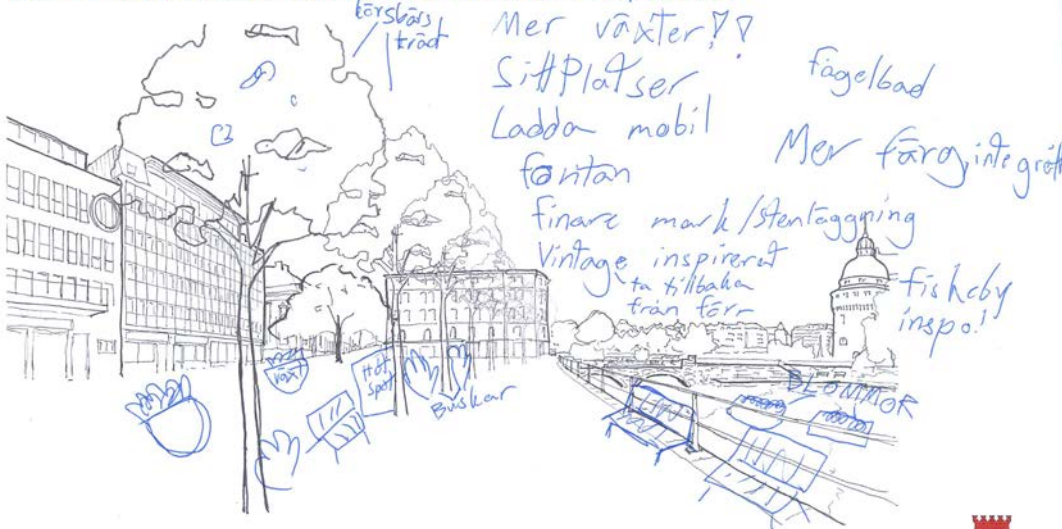 körsbärs
träd
Mer växter!!
SittPlatser
Ladda mobil
fontan
Finare mark/Stenläggning
Vintage inspirerat
ta tillbaka
från förr
fågelbad
Mer färg, inte grått
fiskeby
inspo!
växt
Hot
spot
Buskar
BLOMMOR